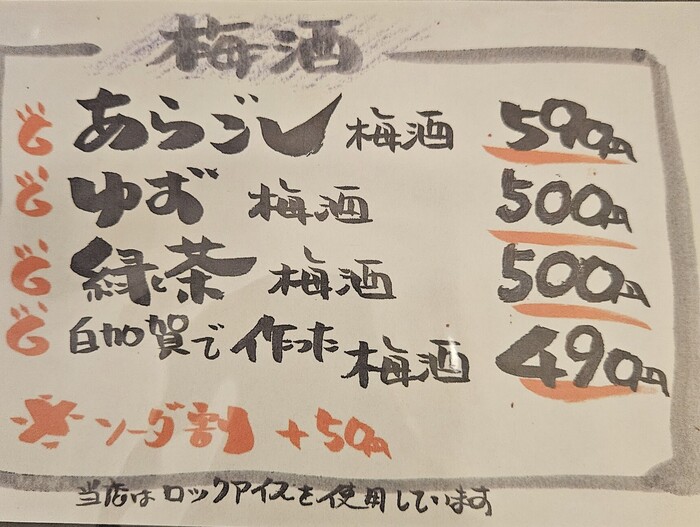 梅酒
あらごし梅酒 590円
ゆず梅酒 500円
緑茶梅酒 500円
白加賀で作った梅酒 490円
ソーダ割 +50円
当店はロックアイスを使用しています